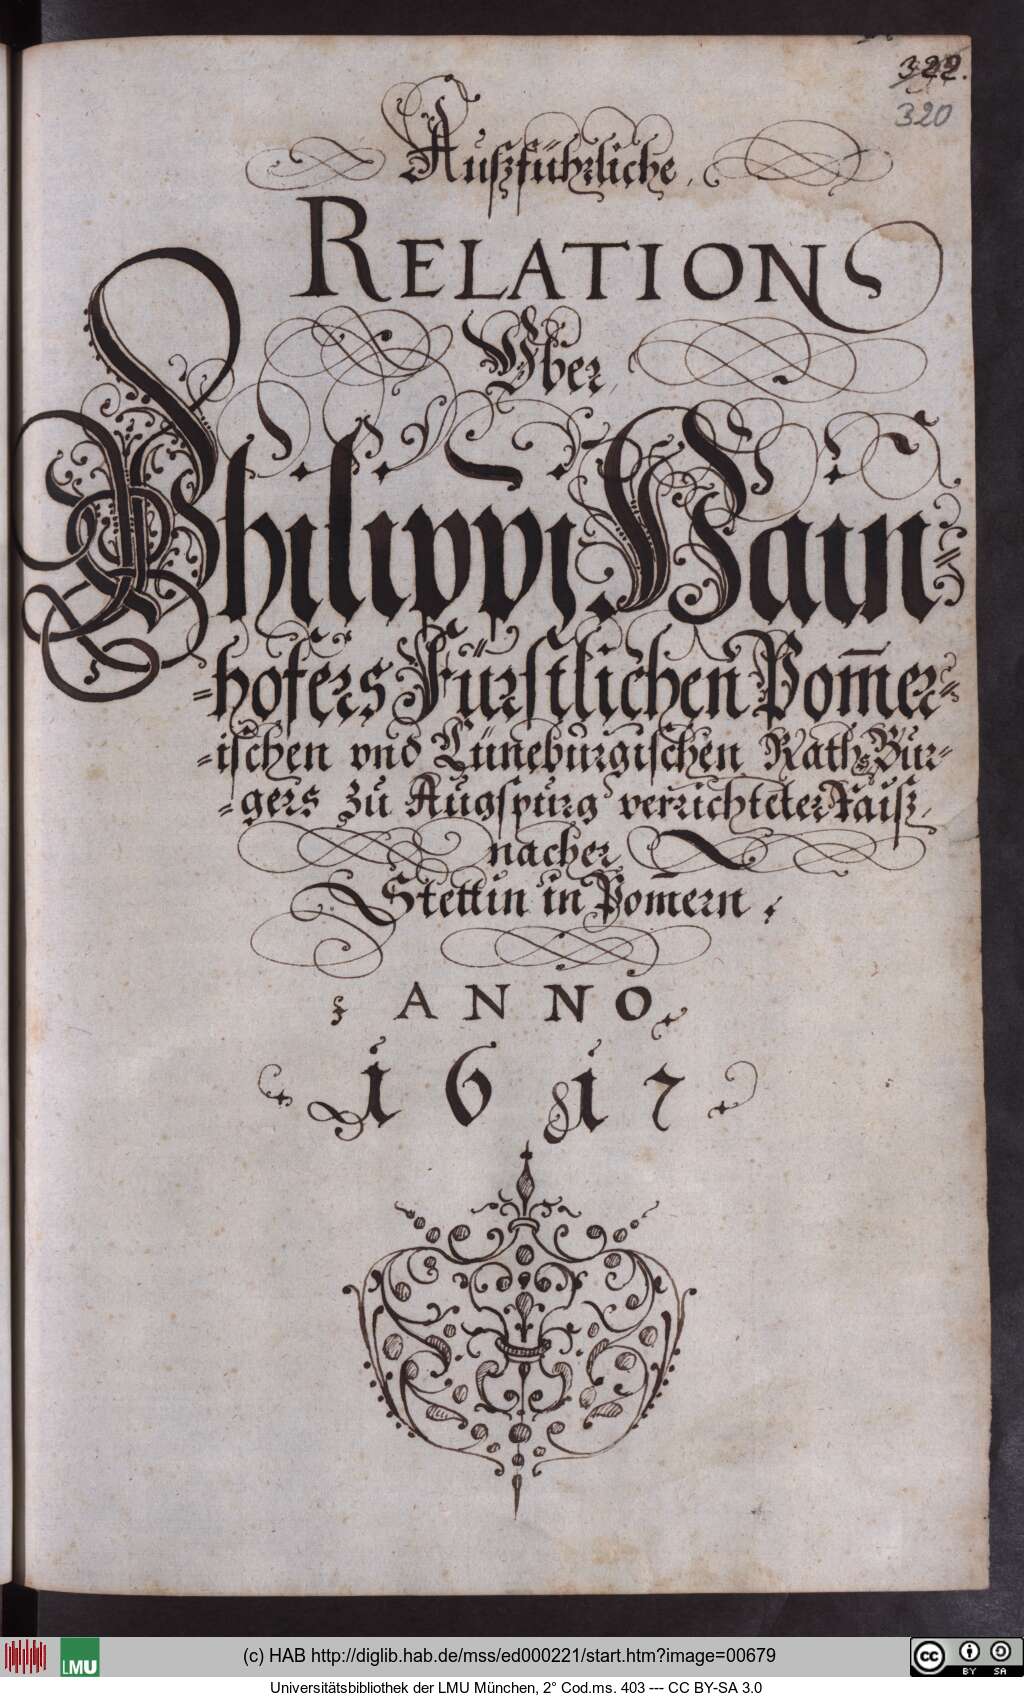 322.
320
Außführliche
RELATION
Vber
Philippi Hain-
-hofers Fürstlichen Pom̄er-
-ischen vnd Lüneburgischen Raths Bur-
-gers zu Augspurg verrichteter Raiß
nacher
Stettin in Pom̄ern
ANNO
1617
LMU
(c) HAB http://diglib.hab.de/mss/ed000221/start.htm?image=00679
cc BY SA
Universitätsbibliothek der LMU München, 2° Cod.ms. 403 --- CC BY-SA 3.0